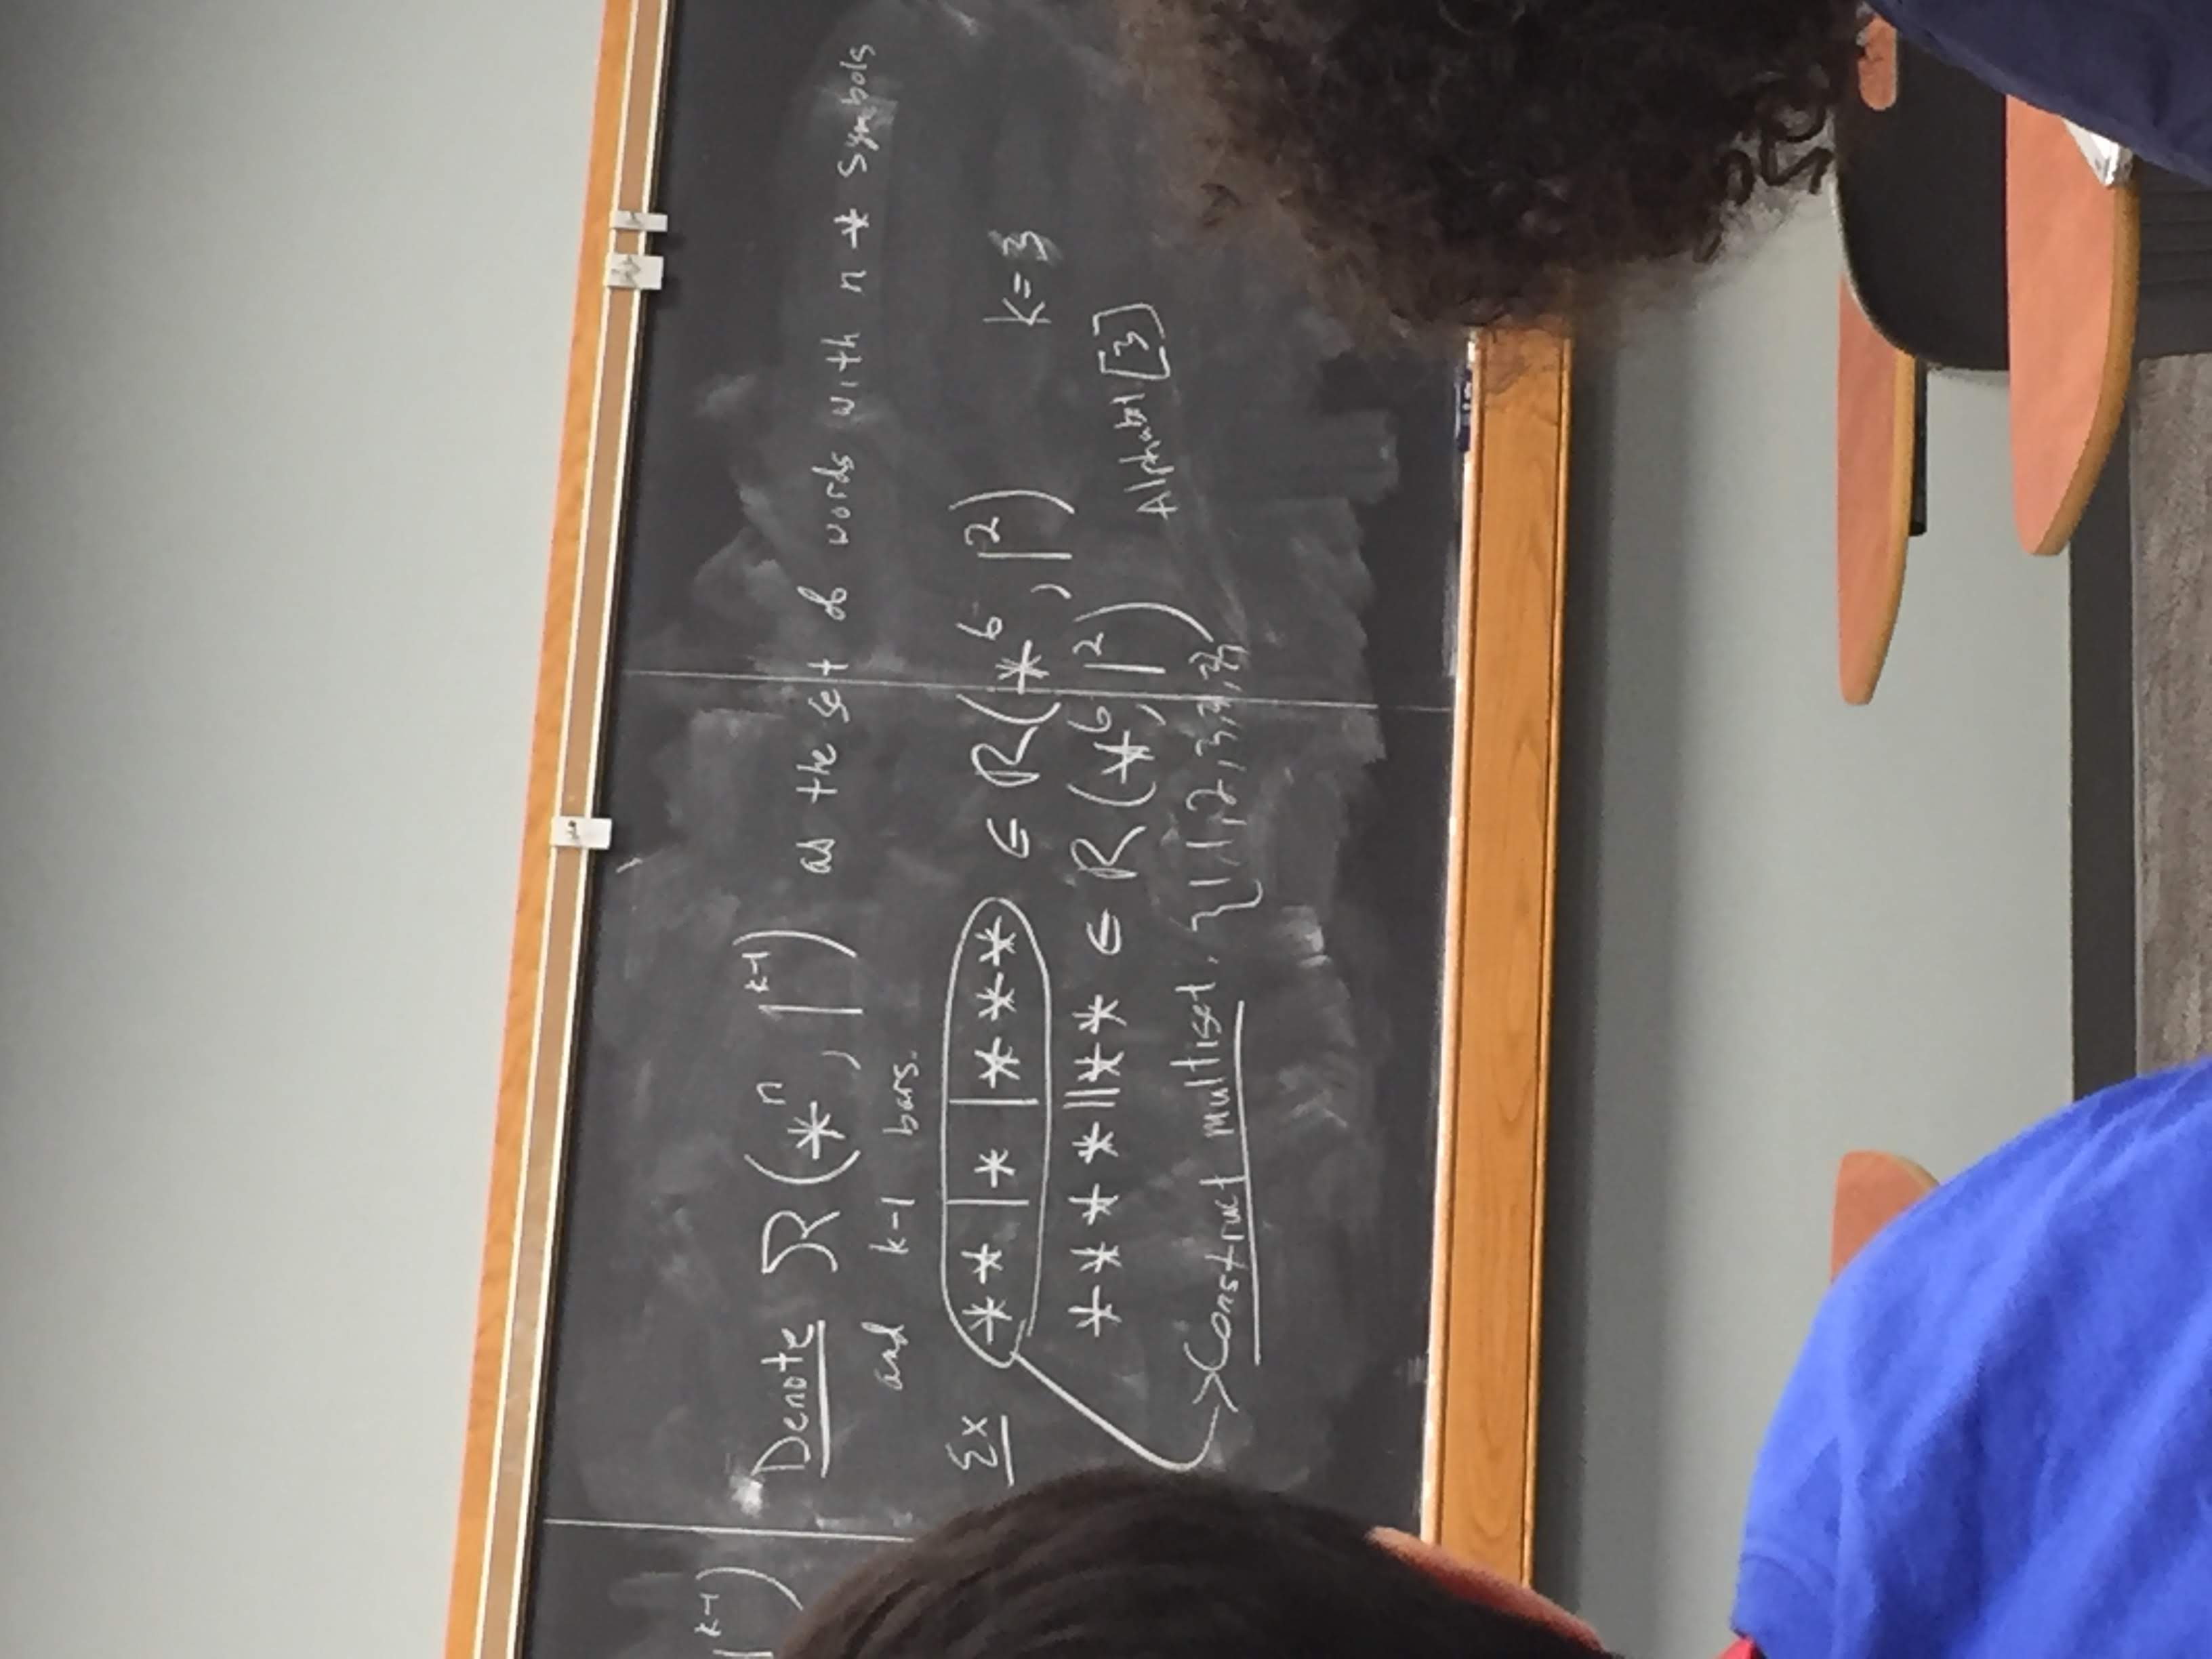 |^{k-1})
Denote R(*^n, |^{k-1}) as the set of words with n * symbols
and k-1 bars.
Ex **|*|*** ∈ R(*^6, |^2) k=3
****||** ∈ R(*^6, |^2) Alphabet [3]
Construct multiset. {1,1,2,3,3,3}